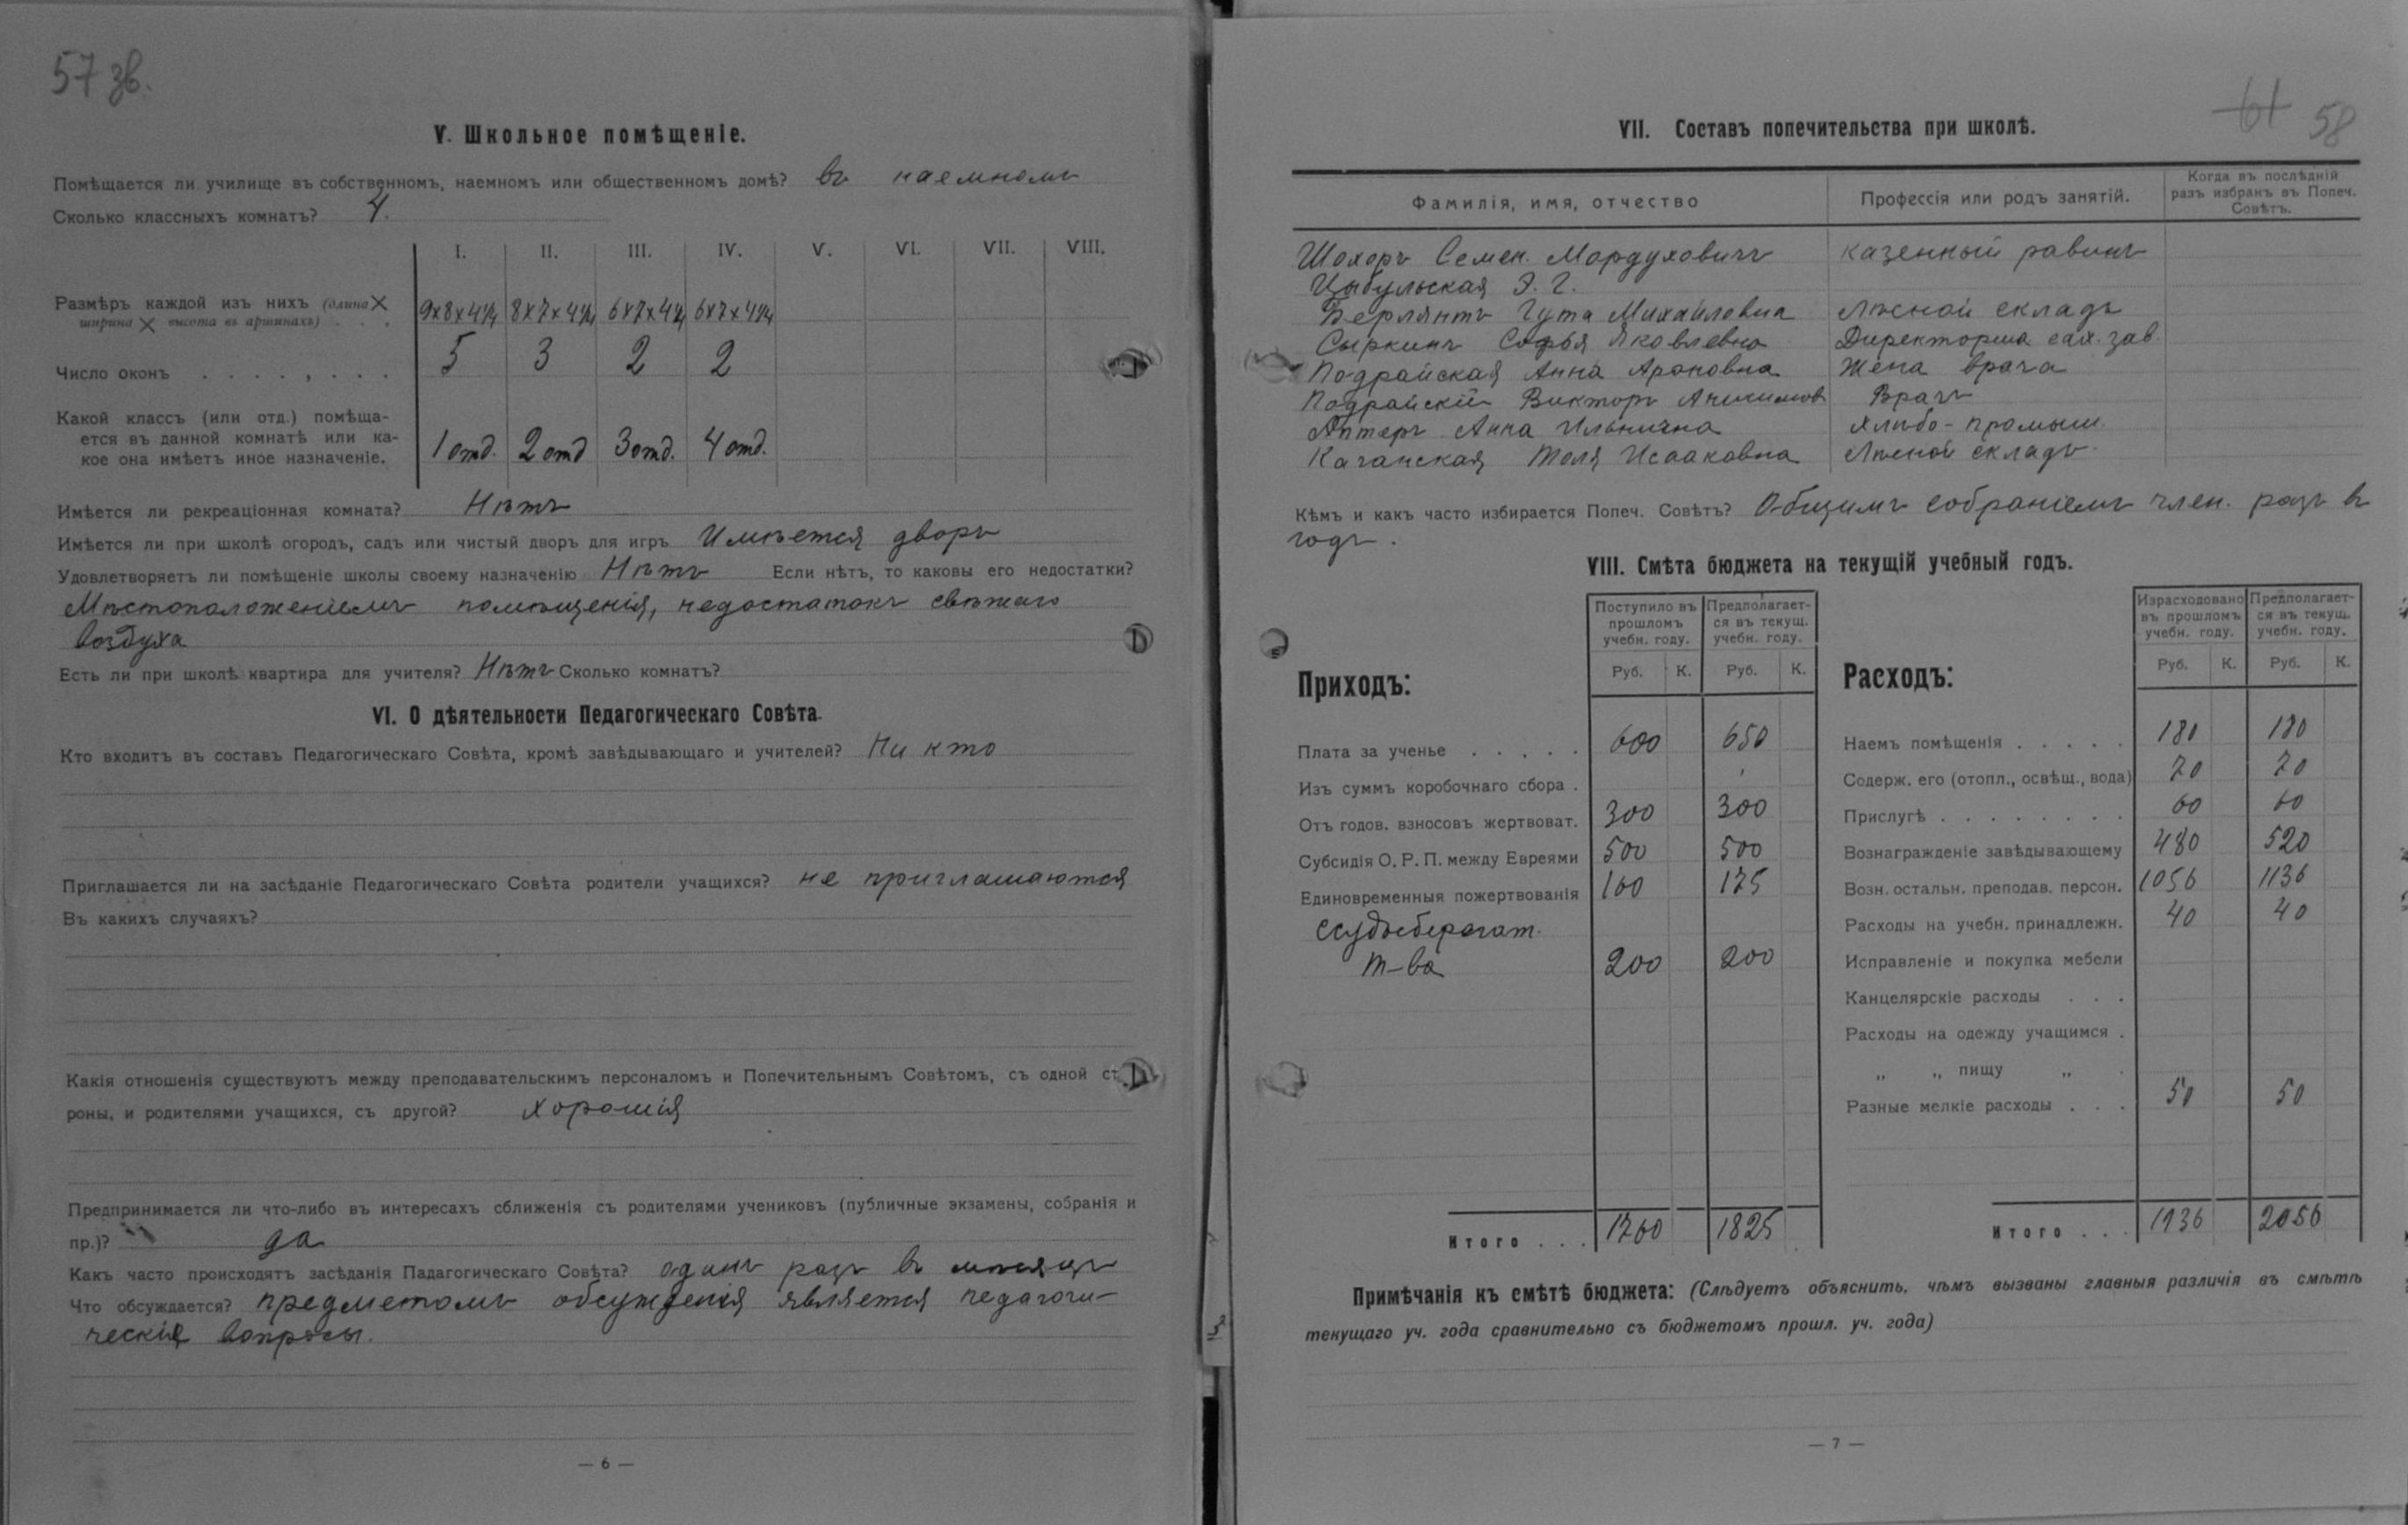 57 зв.
V. Школьное помѣщеніе.
Помѣщается ли училище въ собственномъ, наемномъ или общественномъ домѣ? въ наемномъ
Сколько классныхъ комнатъ? 4.
I. II. III. IV. V. VI. VII. VIII.
Размѣръ каждой изъ нихъ (длина ×
ширина × высота въ аршинахъ) . . . 9х8х4¼ 8х7х4¼ 6х7х4¼ 6х7х4¼
Число оконъ . . . . , . . . 5 3 2 2
Какой классъ (или отд.) помѣща-
ется въ данной комнатѣ или ка-
кое она имѣетъ иное назначеніе. 1 отд. 2 отд 3 отд. 4 отд.
Имѣется ли рекреаціонная комната? Нѣтъ
Имѣется ли при школѣ огородъ, садъ или чистый дворъ для игръ Имѣется дворъ
Удовлетворяетъ ли помѣщеніе школы своему назначенію Нѣтъ Если нѣтъ, то каковы его недостатки?
Мѣстоположеніемъ помѣщенія, недостатокъ свѣжаго
воздуха
Есть ли при школѣ квартира для учителя? Нѣтъ Сколько комнатъ?
VI. О дѣятельности Педагогическаго Совѣта.
Кто входитъ въ составъ Педагогическаго Совѣта, кромѣ завѣдывающаго и учителей? Ни кто
Приглашается ли на засѣданіе Педагогическаго Совѣта родители учащихся? не приглашаются
Въ какихъ случаяхъ?
Какія отношенія существуютъ между преподавательскимъ персоналомъ и Попечительнымъ Совѣтомъ, съ одной ст
роны, и родителями учащихся, съ другой? хорошія
Предпринимается ли что-либо въ интересахъ сближенія съ родителями учениковъ (публичные экзамены, собранія и
пр.)? да
Какъ часто происходятъ засѣданія Падагогическаго Совѣта? одинъ разъ въ мѣсяцъ
Что обсуждается? предметомъ обсужденія является педагоги-
ческія вопросы.
— 6 —
61 58
VII. Составъ попечительства при школѣ.
Фамилія, имя, отчество Профессія или родъ занятій. Когда въ послѣдній
разъ избранъ въ Попеч.
Совѣтъ.
Шохоръ Семен. Мордуховичъ казенный равинъ
Цыбульская Э. Г.
Берлянтъ Гута Михайловна Лѣсной складъ
Сыркинъ Софья Яковлевна Директорша сах. зав.
Подрайская Анна Ароновна Жена врача
Подрайскій Викторъ Врачъ
Аптеръ Анна Ильнична Хлѣбо-промыш.
Каганская Толя Исааковна Лѣсной складъ.
Кѣмъ и какъ часто избирается Попеч. Совѣтъ? Общимъ собраніемъ член. разъ въ
годъ.
VIII. Смѣта бюджета на текущій учебный годъ.
Приходъ: Поступило въ прошломъ учебн. году. Предполагает-ся въ текущ. учебн. году.
Руб. К. Руб. К.
Плата за ученье . . . . . 600 650
Изъ суммъ коробочнаго сбора .
Отъ годов. взносовъ жертвоват. 300 300
Субсидія О. Р. П. между Евреями 500 500
Единовременныя пожертвованія 160 175
Ссудосберегат.
т-ва 200 200
Итого . . . 1760 1825
Расходъ: Израсходовано въ прошломъ учебн. году. Предполагает-ся въ текущ. учебн. году.
Руб. К. Руб. К.
Наемъ помѣщенія . . . . . 180 180
Содерж. его (отопл., освѣщ., вода) 70 70
Прислугѣ . . . . . . . . 60 60
Вознагражденіе завѣдывающему 480 520
Возн. остальн. преподав. персон. 1056 1136
Расходы на учебн. принадлежн. 40 40
Исправленіе и покупка мебели
Канцелярскіе расходы . . .
Расходы на одежду учащимся .
„ „ пищу „ .
Разные мелкіе расходы . . . 50 50
Итого . . . 1936 2056
Примѣчанія къ смѣтѣ бюджета: (Слѣдуетъ объяснить, чѣмъ вызваны главныя различія въ смѣтѣ
текущаго уч. года сравнительно съ бюджетомъ прошл. уч. года)
— 7 —